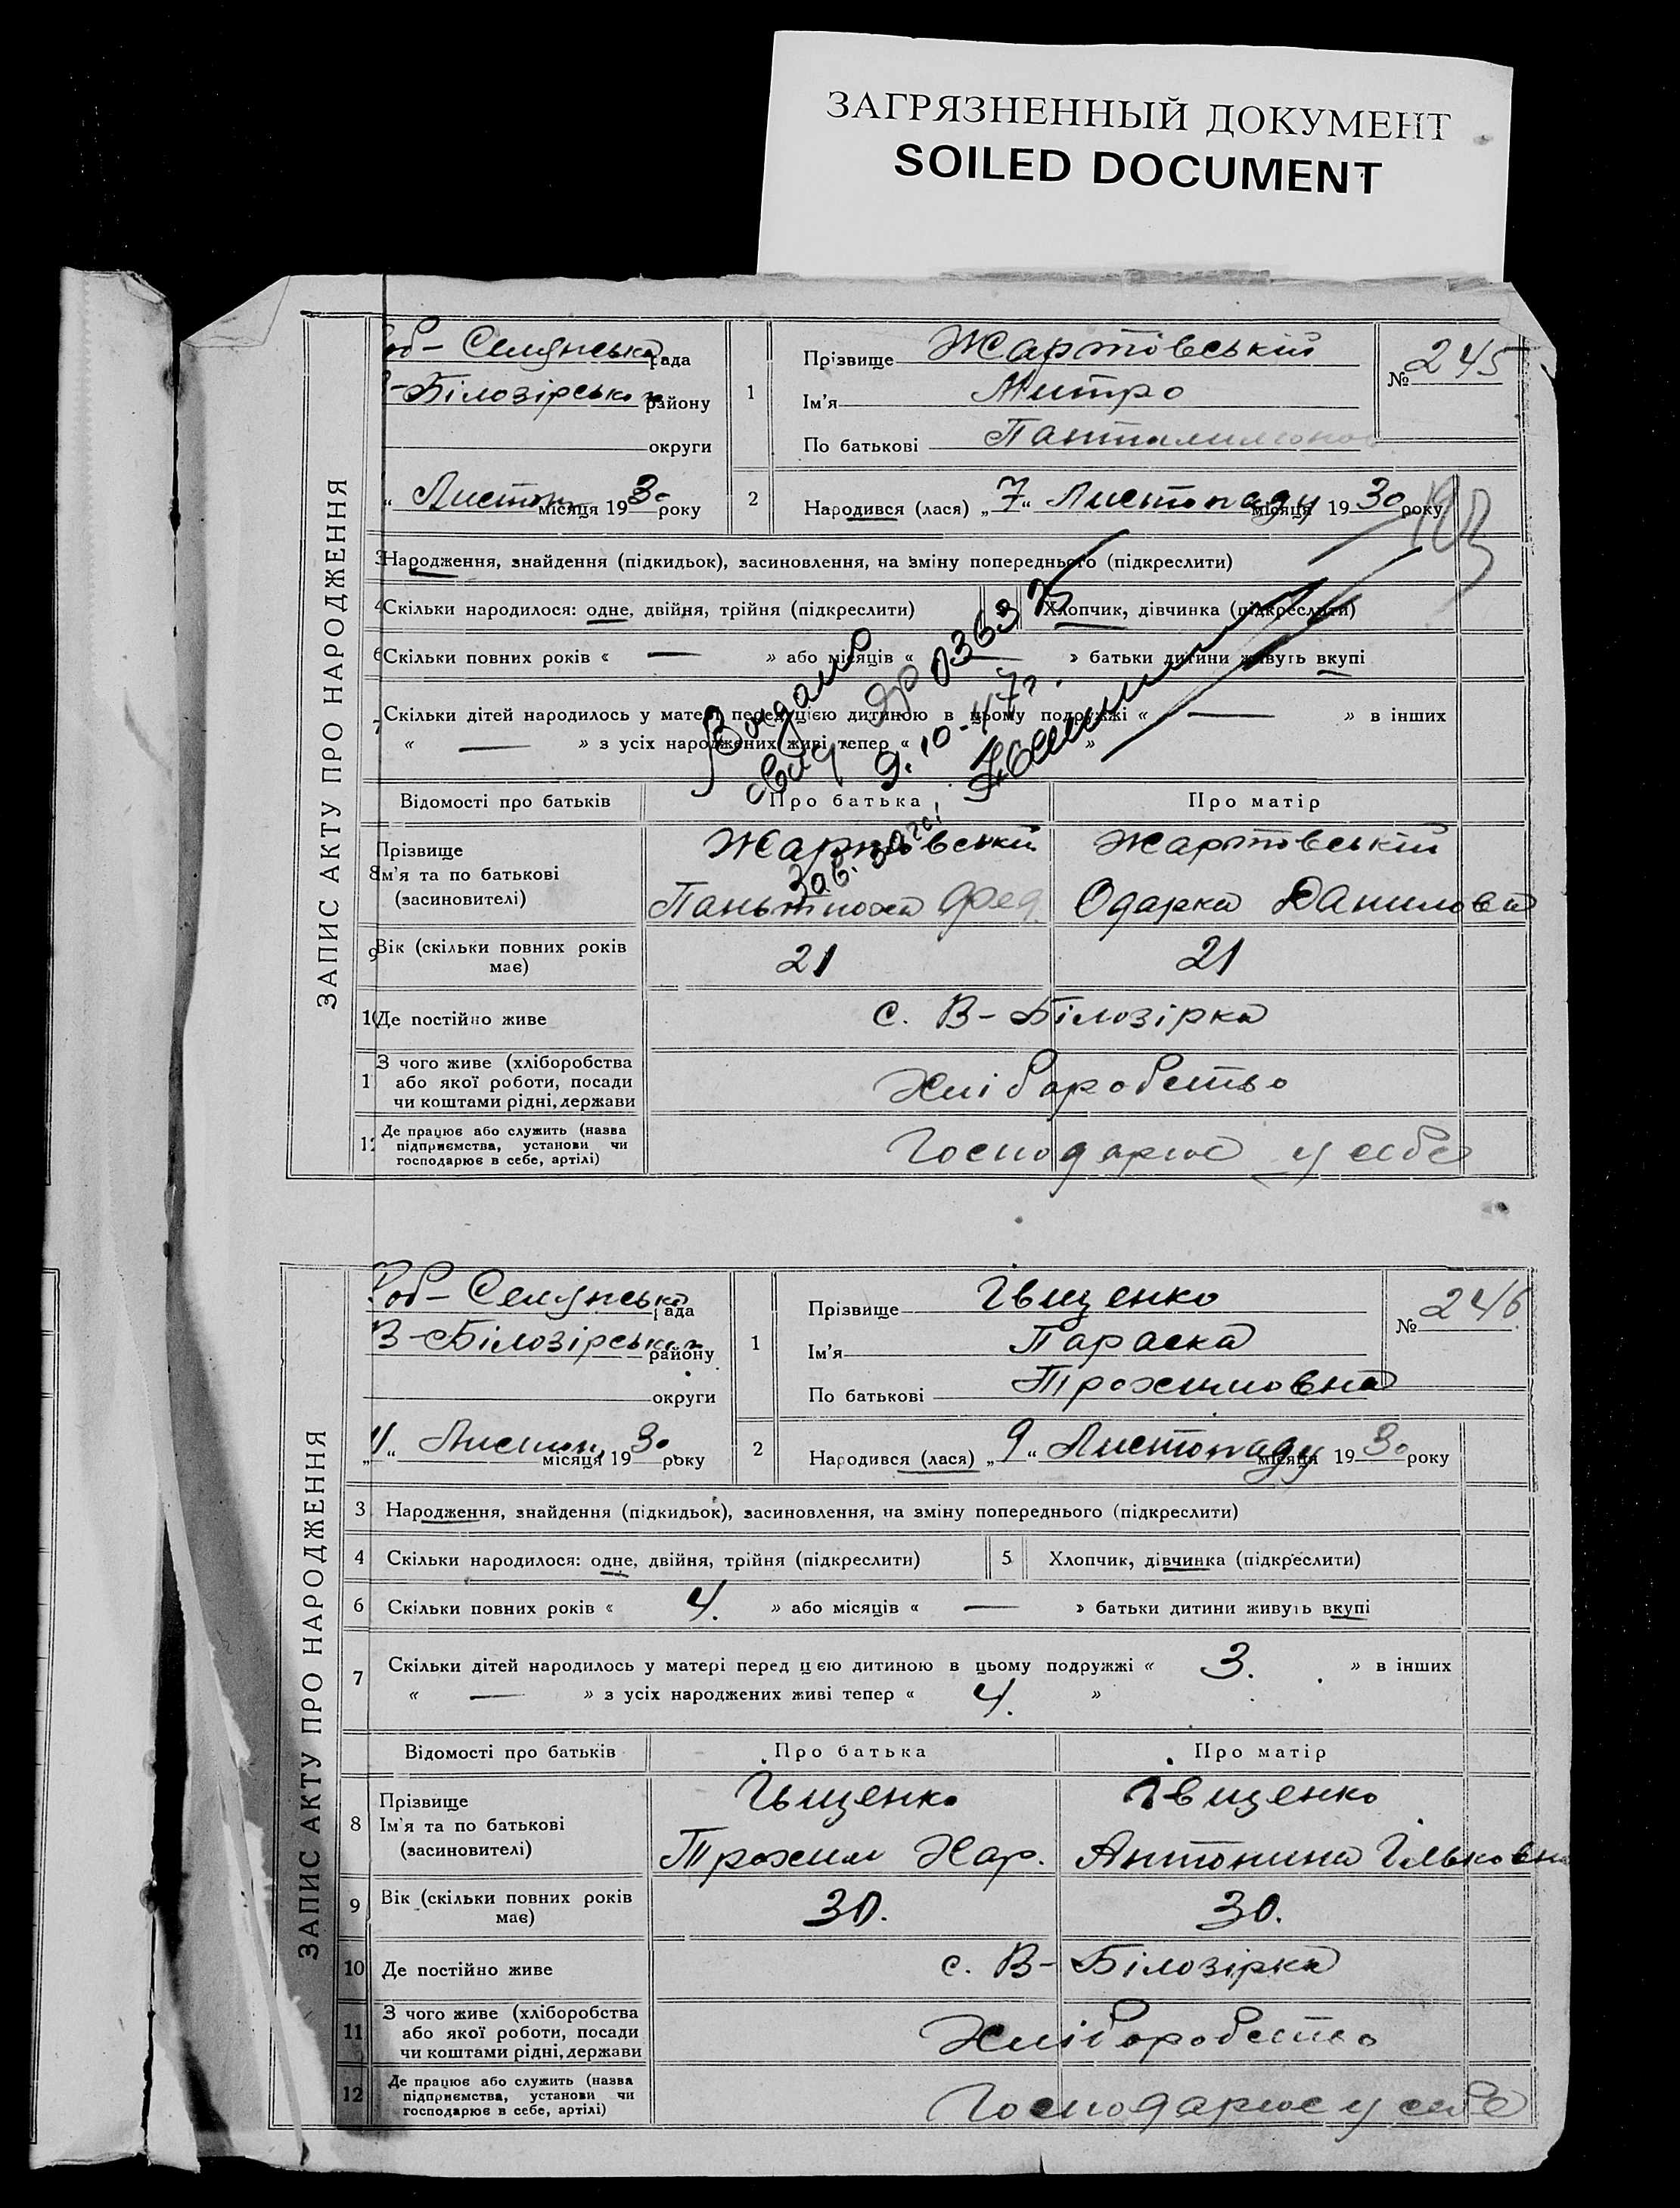 ЗАГРЯЗНЕННЫЙ ДОКУМЕНТ
SOILED DOCUMENT
ЗАПИС АКТУ ПРО НАРОДЖЕННЯ
об- Селянська рада
-Білозірськ району
округи
“ Листоп місяця 1930 року
1
Прізвище Жартовський
Ім'я Митро
По батькові Панталимонов
№ 245
2
Народився (лася) „7“ Листопаду місяця 1930 року
3 Народження, знайдення (підкидьок), засиновлення, на зміну попереднього (підкреслити)
4 Скільки народилося: одне, двійня, трійня (підкреслити)
Хлопчик, дівчинка (підкреслити)
6 Скільки повних років « — » або місяців « — » батьки дитини живуть вкупі
7 Скільки дітей народилось у матері перед цією дитиною в цьому подружжі « — » в інших
« — » з усіх народжених живі тепер « »
Видано
9.10-47г.
Зав. загсі
Відомості про батьків
Про батька
Про матір
Прізвище
8 Ім'я та по батькові
(засиновителі)
Жартовський
Фед.
Жартовський
Одарка Данилова
9 Вік (скільки повних років
має)
21
21
10 Де постійно живе
с. В-Білозірка
З чого живе (хліборобства
11 або якої роботи, посади
чи коштами рідні, держави
Хліборобство
Де працює або служить (назва
12 підприємства, установи чи
господарює в себе, артілі)
Господарює у себе
ЗАПИС АКТУ ПРО НАРОДЖЕННЯ
Роб- Селянська рада
В-Білозірськ району
округи
„11“ Листоп місяця 1930 року
1
Прізвище Івщенко
Ім'я Параска
По батькові Трохимовна
№ 246
2
Народився (лася) „9“ Листопаду місяця 1930 року
3 Народження, знайдення (підкидьок), засиновлення, на зміну попереднього (підкреслити)
4 Скільки народилося: одне, двійня, трійня (підкреслити)
5 Хлопчик, дівчинка (підкреслити)
6 Скільки повних років « 4. » або місяців « — » батьки дитини живуть вкупі
7 Скільки дітей народилось у матері перед цією дитиною в цьому подружжі « 3. » в інших
« — » з усіх народжених живі тепер « 4. »
Відомості про батьків
Про батька
Про матір
Прізвище
8 Ім'я та по батькові
(засиновителі)
Івщенко
Трохим Хар.
Івщенко
Антонина Ільковна
9 Вік (скільки повних років
має)
30.
30.
10 Де постійно живе
с. В-Білозірка
З чого живе (хліборобства
11 або якої роботи, посади
чи коштами рідні, держави
Хліборобство
Де працює або служить (назва
12 підприємства, установи чи
господарює в себе, артілі)
Господарює у себе